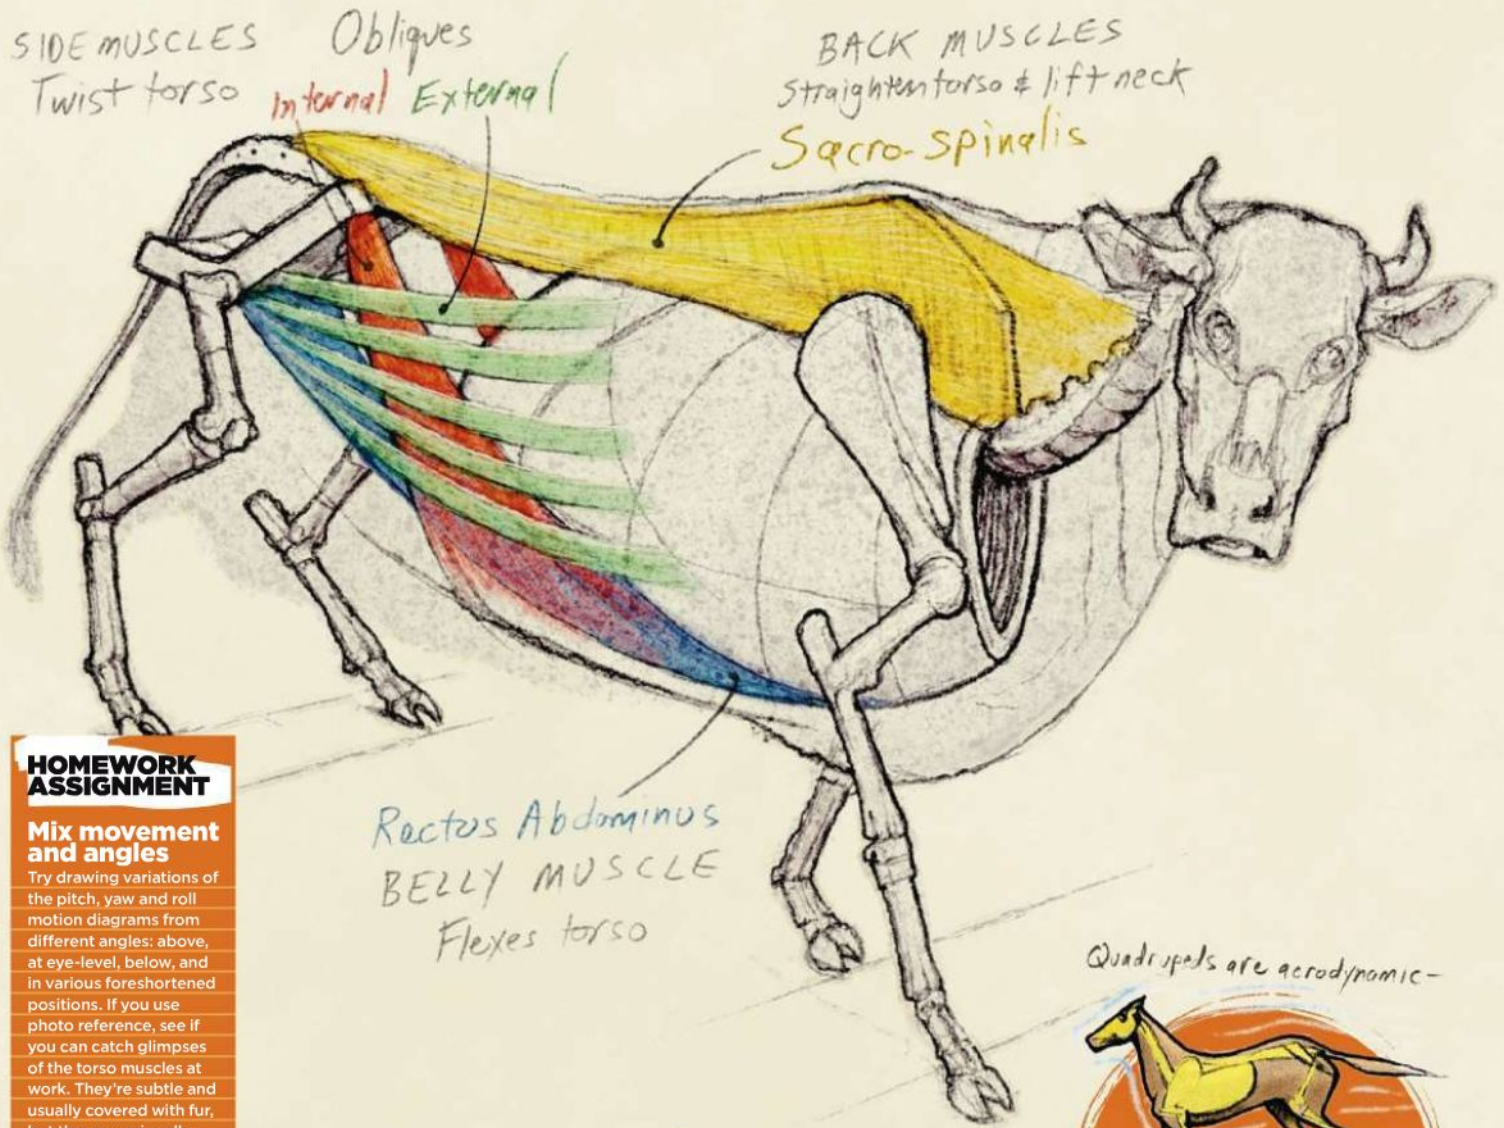 SIDE MUSCLES
Twist torso
Obliques
Internal External
BACK MUSCLES
Straighten torso & lift neck
Sacro-spinalis
Rectus Abdominus
BELLY MUSCLE
Flexes torso
HOMEWORK
ASSIGNMENT
Mix movement
and angles
Try drawing variations of
the pitch, yaw and roll
motion diagrams from
different angles: above,
at eye-level, below, and
in various foreshortened
positions. If you use
photo reference, see if
you can catch glimpses
of the torso muscles at
work. They're subtle and
usually covered with fur,
Quadrupeds are aerodynamic-